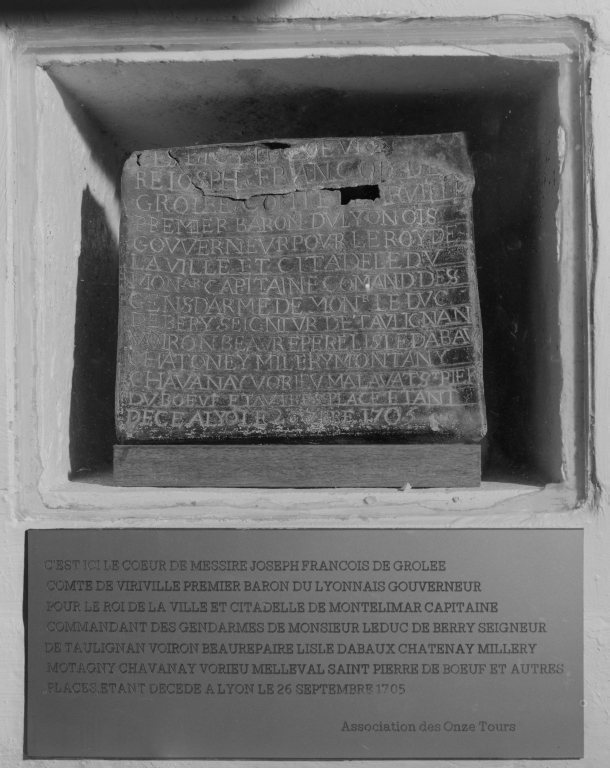 GROLEE COMTE
PREMIER BARON DU LYONOIS
GOUVERNEUR POUR LE ROY DE
LA VILLE ET CITADELE DU
MON^AR CAPITAINE COMAND DES
GENSDARME DE MON^R LE DUC
DE BERY SEIGNEUR DE TAULIGNAN
BEAUREPERE LISLE DABAU
CHATONEY MILLERY MONTANY
CHAVANAY VORIEU MALAVAT S^T PIER
DU BOEUF ET AUTRES PLACE ETANT
DECE A LYO LE 26 1705
C'EST ICI LE COEUR DE MESSIRE JOSEPH FRANCOIS DE GROLEE
COMTE DE VIRIVILLE PREMIER BARON DU LYONNAIS GOUVERNEUR
POUR LE ROI DE LA VILLE ET CITADELLE DE MONTELIMAR CAPITAINE
COMMANDANT DES GENDARMES DE MONSIEUR LEDUC DE BERRY SEIGNEUR
DE TAULIGNAN VOIRON BEAUREPAIRE LISLE DABAUX CHATENAY MILLERY
MOTAGNY CHAVANAY VORIEU MELLEVAL SAINT PIERRE DE BOEUF ET AUTRES
PLACES.ETANT DECEDE A LYON LE 26 SEPTEMBRE 1705
Association des Onze Tours